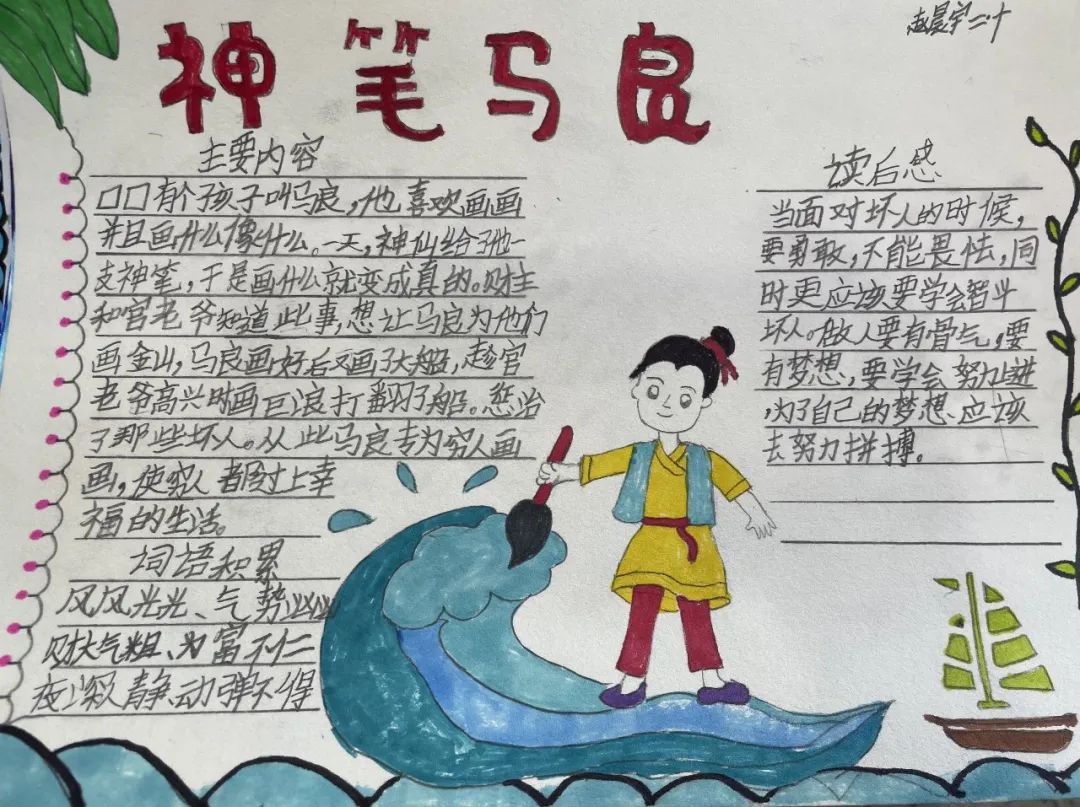 神笔马良
赵晨宇二十
主要内容
口口有个孩子叫马良，他喜欢画画
并且画什么像什么。一天，神仙给了他一
支神笔，于是画什么就变成真的。财主
和官老爷知道此事，想让马良为他们
画金山，马良画好后又画了大船，趁官
老爷高兴时画巨浪打翻了船。惩治
了那些坏人。从此马良专为穷人画
画，使穷人都过上幸
福的生活。
词语积累
风风光光、气势汹汹
财大气粗、为富不仁
夜深人静、动弹不得
读后感
当面对坏人的时候，
要勇敢，不能畏怯，同
时更应该要学会智斗
坏人。做人要有骨气，要
有梦想，要学会努力上进
，为了自己的梦想、应该
去努力拼搏。